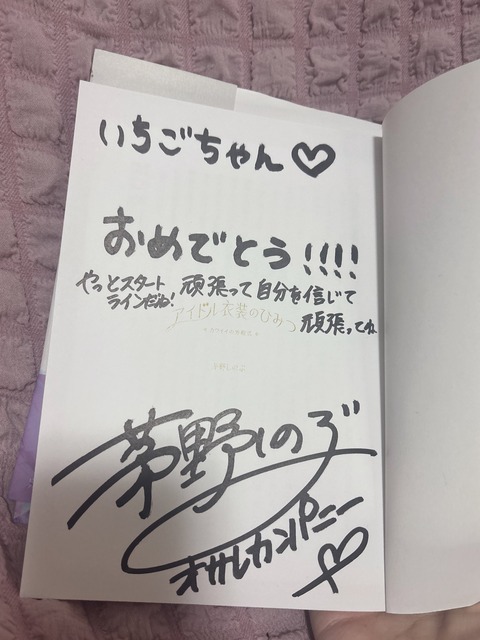 いちごちゃん♡
おめでとう!!!!
やっとスタート
ラインだね!
頑張って自分を信じて
頑張ってね
アイドル衣装のひみつ
茅野しのぶ
茅野しのぶ
オサレカンパニー